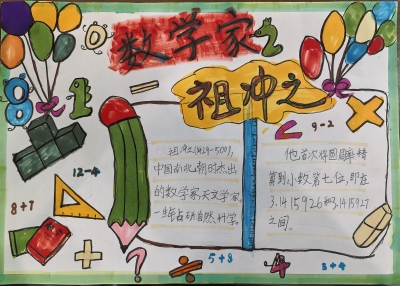 数学家
祖冲之
9-2
祖冲之(429-500),
中国南北朝的杰出
的数学家,天文学家。
一生钻研自然科学。
他首次将圆周率精
算到小数第七位,即在
3.1415926和3.1415927
之间。
12-4
8+7
5+8
4
3+4